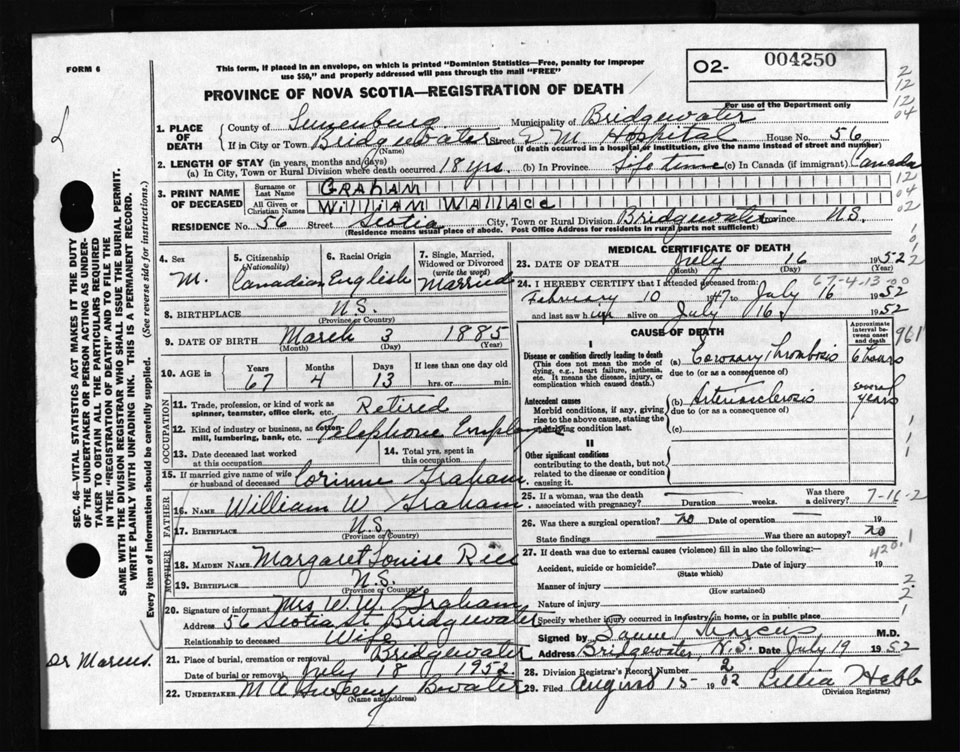 FORM 6
This form, if placed in an envelope, on which is printed "Dominion Statistics—Free, penalty for improper
use $50," and properly addressed will pass through the mail "FREE"
02- 004250
For use of the Department only
PROVINCE OF NOVA SCOTIA—REGISTRATION OF DEATH
1. PLACE OF DEATH
County of Lunenburg Municipality of Bridgewater
If in City or Town Bridgewater Street D.M. Hospital House No. 56
(Name) (If death occurred in a hospital or institution, give the name instead of street and number)
2. LENGTH OF STAY (in years, months and days)
(a) In City, Town or Rural Division where death occurred 18 yrs. (b) In Province Life time (c) In Canada (if immigrant) Canada
3. PRINT NAME OF DECEASED
Surname or Last Name GRAHAM
All Given or Christian Names WILLIAM WALLACE
RESIDENCE No. 56 Street Scotia City, Town or Rural Division Bridgewater Province N.S.
(Residence means usual place of abode. Post Office Address for residents in rural parts not sufficient)
4. Sex M.
5. Citizenship (Nationality) Canadian
6. Racial Origin English
7. Single, Married, Widowed or Divorced (write the word) Married
8. BIRTHPLACE N.S.
(Province or Country)
9. DATE OF BIRTH March 3 1885
(Month) (Day) (Year)
10. AGE in Years Months Days If less than one day old
67 4 13 hrs. or min.
OCCUPATION
11. Trade, profession, or kind of work as
spinner, teamster, office clerk, etc. Retired
12. Kind of industry or business, as cotton-
mill, lumbering, bank, etc. Telephone Employee
13. Date deceased last worked
at this occupation
14. Total yrs. spent in
this occupation
15. If married give name of wife
or husband of deceased Corinne Graham
FATHER
16. NAME William W Graham
17. BIRTHPLACE N.S.
(Province or Country)
MOTHER
18. MAIDEN NAME Margaret Louise
19. BIRTHPLACE N.S.
(Province or Country)
20. Signature of informant Mrs W.W. Graham
Address 56 Scotia St Bridgewater
Relationship to deceased Wife
21. Place of burial, cremation or removal Bridgewater
Date of burial or removal July 18 1952
22. UNDERTAKER M A Sweeny B.water
(Name and address)
MEDICAL CERTIFICATE OF DEATH
23. DATE OF DEATH July 16 1952
(Month) (Day) (Year)
24. I HEREBY CERTIFY that I attended deceased from: 67-4-13
February 10 1947 to July 16 1952
and last saw him alive on July 16 1952
CAUSE OF DEATH
Approximate interval between onset and death
I
Disease or condition directly leading to death
(This does not mean the mode of
dying, e.g., heart failure, asthenia,
etc. It means the disease, injury, or
complication which caused death.)
(a) Coronary Thrombosis 6 hours
due to (or as a consequence of)
Antecedent causes
Morbid conditions, if any, giving
rise to the above cause, stating the
underlying condition last.
(b) Arteriosclerosis several years
due to (or as a consequence of)
(c)
II
Other significant conditions
contributing to the death, but not
related to the disease or condition
causing it.
25. If a woman, was the death
associated with pregnancy? Duration weeks. Was there a delivery? 7-16-2
26. Was there a surgical operation? no Date of operation 19
State findings Was there an autopsy? no
27. If death was due to external causes (violence) fill in also the following:— 420.1
Accident, suicide or homicide? Date of injury 19
(State which)
Manner of injury
(How sustained)
Nature of injury
Specify whether injury occurred in industry, in home, or in public place
Signed by Marcus M.D.
Address Bridgewater, N.S. Date July 19 1952
28. Division Registrar's Record Number 2
29. Filed August 15 Lillia Hebb
(Division Registrar)
SEC. 46—VITAL STATISTICS ACT MAKES IT THE DUTY
OF THE UNDERTAKER OR PERSON ACTING AS UNDER-
TAKER TO OBTAIN ALL THE PARTICULARS REQUIRED
IN THE "REGISTRATION OF DEATH" AND TO FILE THE
SAME WITH THE DIVISION REGISTRAR WHO SHALL ISSUE THE BURIAL PERMIT.
WRITE PLAINLY WITH UNFADING INK. THIS IS A PERMANENT RECORD.
Every item of information should be carefully supplied. (See reverse side for instructions.)
Dr Marcus.